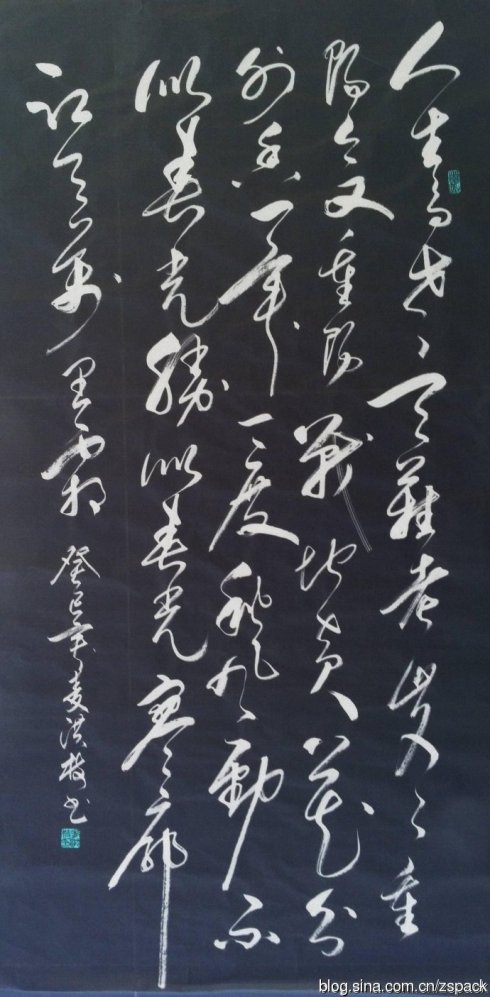 人生易老天難老歲歲重
陽今又重陽戰地黃花分
外香一年一度秋風勁不
似春光勝似春光寥廓
江天萬里霜 癸巳年夏洪书
blog.sina.com.cn/zspack